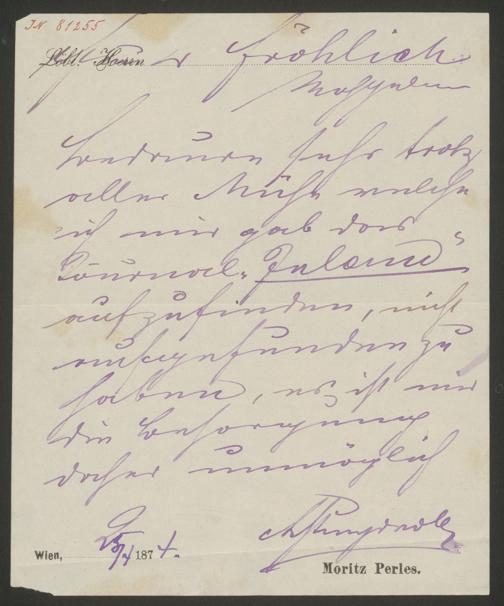 I.N. 81255
Löbl. Herrn
Herr Fröhlich
Wohlgeboren
Bedaure sehr trotz
aller Mühe welche
ich mir gab das
Journal „Inland“
aufzufinden, nicht
aufgefunden zu
haben, es ist mir
die Besorgung
daher unmöglich
Wien, 187 4.
Moritz Perles.